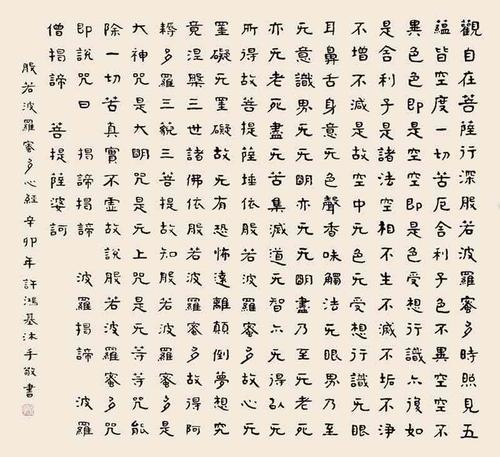 觀自在菩薩行深般若波羅蜜多時照見五
蘊皆空度一切苦厄舍利子色不異空空不
異色色即是空空即是色受想行識亦復如
是舍利子是諸法空相不生不滅不垢不淨
不增不減是故空中无色无受想行識无眼
耳鼻舌身意无色聲香味觸法无眼界乃至
无意識界无无明亦无无明盡乃至无老死
亦无老死盡无苦集滅道无智亦无得以无
所得故菩提薩埵依般若波羅蜜多故心无
罣礙无罣礙故无有恐怖遠離顛倒夢想究
竟涅槃三世諸佛依般若波羅蜜多故得阿
耨多羅三藐三菩提故知般若波羅蜜多是
大神咒是大明咒是无上咒是无等等咒能
除一切苦真實不虛故說般若波羅蜜多咒
即說咒曰 揭諦揭諦 波羅揭諦 波羅
僧揭諦 菩提薩婆訶
般若波羅蜜多心經 辛卯年許鴻基沐手敬書